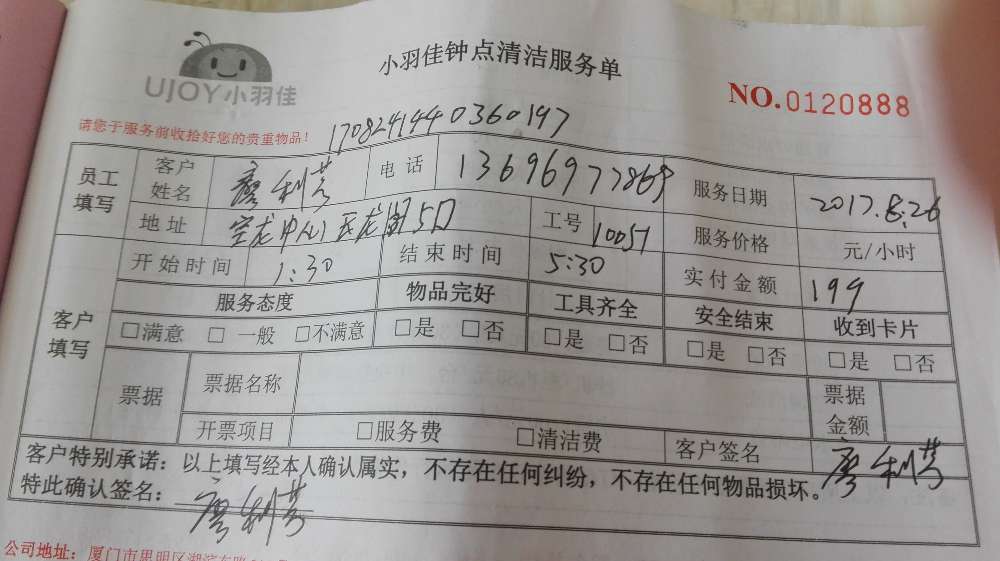 小羽佳钟点清洁服务单
UJOY小羽佳
NO.0120888
请您于服务前收拾好您的贵重物品！
1708241440360197
员工填写 客户姓名 廖利芳 电话 13696977869 服务日期 2017.8.26
地址 龙中心 阁5D 工号 10057 服务价格 元/小时
客户填写 开始时间 1:30 结束时间 5:30 实付金额 199
服务态度 物品完好 工具齐全 安全结束 收到卡片
□满意 □一般 □不满意 □是 □否 □是 □否 □是 □否 □是 □否
票据 票据名称 票据金额
开票项目 □服务费 □清洁费 客户签名 廖利芳
客户特别承诺：以上填写经本人确认属实，不存在任何纠纷，不存在任何物品损坏。
特此确认签名：廖利芳
公司地址：厦门市思明区湖滨东路